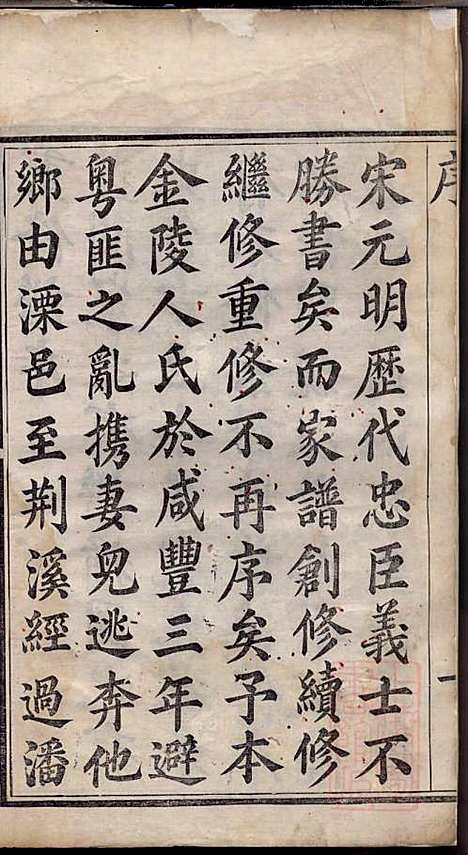 序
一
宋元明歷代忠臣義士不
勝書矣而家譜創修續修
繼修重修不再序矣予本
金陵人氏於咸豐三年避
粤匪之亂携妻兒逃奔他
鄉由溧邑至荆溪經過潘